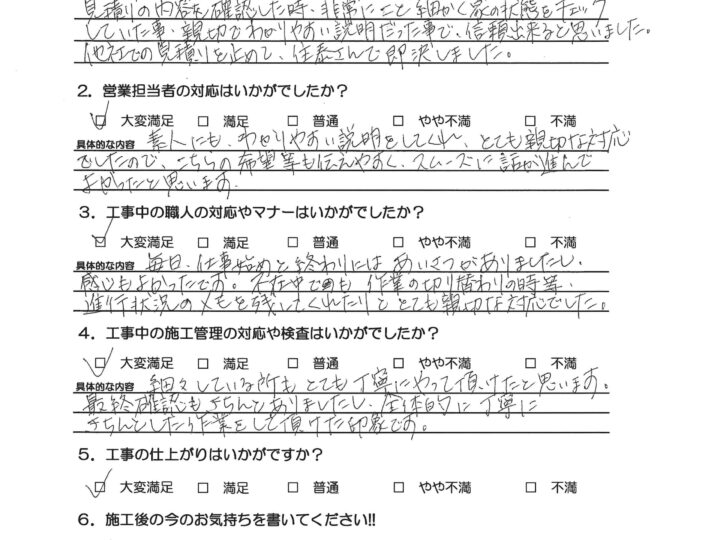 見積りの内容を確認した時、非常にこと細かく家の状態をチェック
していた事、親切でわかりやすい説明だった事で、信頼出来ると思いました。
他社での見積りを止めて、住泰さんで即決しました。
2．営業担当者の対応はいかがでしたか？
□ 大変満足 □ 満足 □ 普通 □ やや不満 □ 不満
具体的な内容 素人にも、わかりやすい説明をしてくれ、とても親切な対応
でしたので、こちらの希望等も伝えやすく、スムーズに話が進んで
よかったと思います。
3．工事中の職人の対応やマナーはいかがでしたか？
□ 大変満足 □ 満足 □ 普通 □ やや不満 □ 不満
具体的な内容 毎日、仕事始めと終わりにはあいさつがありましたし、
感じもよかったです。不在中でも作業の切り替わりの時等、
進行状況のメモを残してくれたりととても親切な対応でした。
4．工事中の施工管理の対応や検査はいかがでしたか？
□ 大変満足 □ 満足 □ 普通 □ やや不満 □ 不満
具体的な内容 細々している所もとても丁寧にやって頂けたと思います。
最終確認もきちんとありましたし、全体的に丁寧に
きちんとした作業をして頂けた印象です。
5．工事の仕上がりはいかがですか？
□ 大変満足 □ 満足 □ 普通 □ やや不満 □ 不満
6．施工後の今のお気持ちを書いてください!!